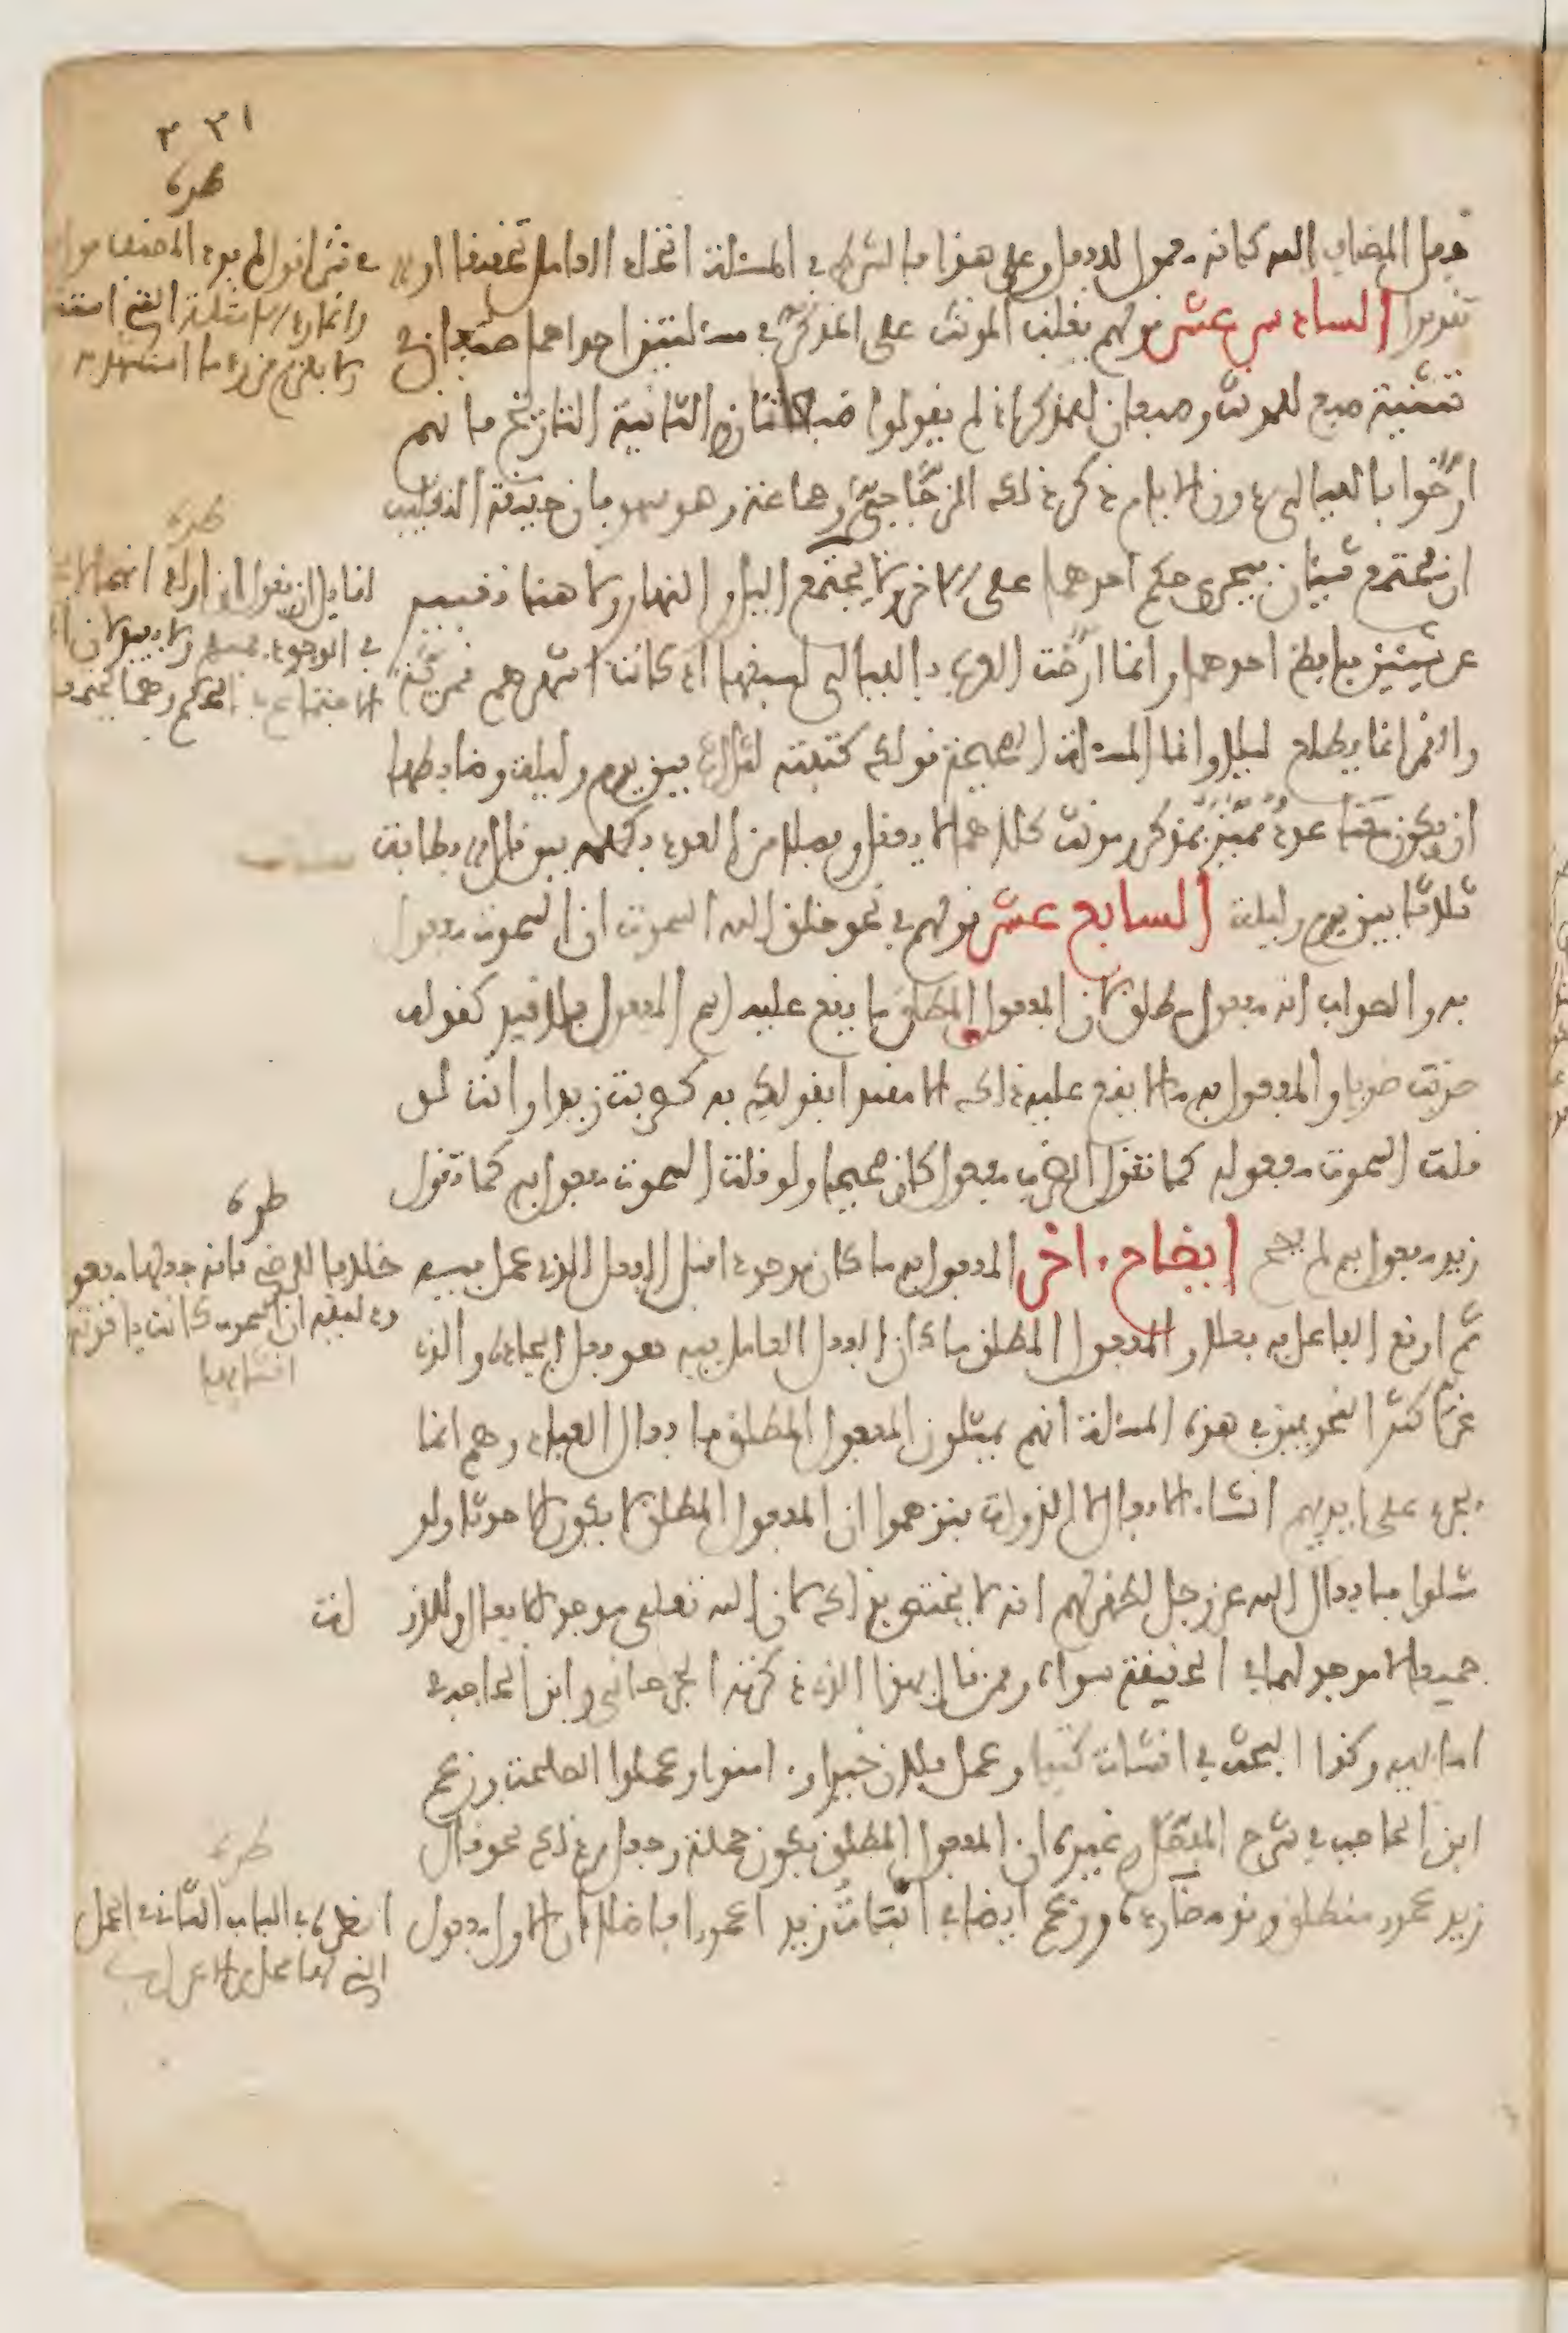 ٣٣١
طرة
فعل المضاف اليه كانه معمول للفعل وعلى هذا فالشرط في المسئلة اتحاد العامل تحقيقا او
تقديرا السادس عشر قولهم يغلب المونث على المذكر في مسئلتين احداهما ضبعان في
تثنية ضبع للمونث وضبعان للمذكر اذ لم يقولوا ضبعانان الثانية التاريخ فانهم
ارّخوا بالليالي دون الايام ذكر ذلك الزجّاجيّ وجماعة وهو سهو فان حقيقة التغليب
ان يجتمع شيئان فيجرى حكم احدهما على الاخر ولا يجتمع الليل والنهار ولا هنا تعبير
عن شيئين بلفظ احدهما وانما ارّخت العرب بالليالي لسبقها اذ كانت اشهرهم قمرية
والقمر انما يطلع ليلا وانما المسئلة الصحيحة قولك كتبته لثلاث بين يوم وليلة وضابطها
ان يكون معنا عدد مميّز بمذكر ومونث كلاهما لا يعقل وفصلا من العدد بكلمة بين قال فطافت
ثلاثا بين يوم وليلة السابع عشر قولهم في نحو خلق الله السموت ان السموت مفعول
به والصواب انه مفعول مطلق لان المفعول المطلق ما يقع عليه اسم المفعول بلا قيد كقولك
ضربت ضربا والمفعول به ما لا يقع عليه ذلك الا مقيدا بقولك به كضربت زيدا وانت لو
قلت السموت مفعوله كما تقول الضرب مفعول كان صحيحا ولو قلت السموت مفعول به كما تقول
زيد مفعول به لم يصح ايضاح اخر المفعول به ما كان موجودا قبل الفعل الذى عمل فيه
ثم اوقع الفاعل به فعلا والمفعول المطلق ما كان الفعل العامل فيه هو فعل ايجاده والذى
غرّ اكثر النحويين في هذه المسئلة انهم يمثلون المفعول المطلق بافعال العباد وهم انما
يجرى على ايديهم انشاء الافعال لا الذوات فتوهموا ان المفعول المطلق لا يكون الا حدثا ولو
مثلوا بافعال الله عز وجل لظهر لهم انه لا يختص بذلك لان الله تعلى موجد الافعال وللذوات
جميعا لا موجد لهما في الحقيقة سواه وممن قال بهذا الذى ذكرته الجرجاني وابن الحاجب في
اماليه وكذا البحث في انشات كتبا وعمل فلان خيرا و امنوا وعملوا الصلحت وزعم
ابن الحاجب في شرح المفصّل وغيره ان المفعول المطلق يكون جملة وجعل من ذلك نحو قال
زيد عمرو منطلق وقد مضى رده وزعم ايضا في انبات زيدا عمرا فاضلا ان الاول مفعول
طرة
ولا يلزم من رد ما استشهد به
طرة
طرة
خلافا للرضي فانه جعلها مفعو
انشائها
طرة
انظره في الباب الثاني في الجمل
التي لها محل من الاعراب